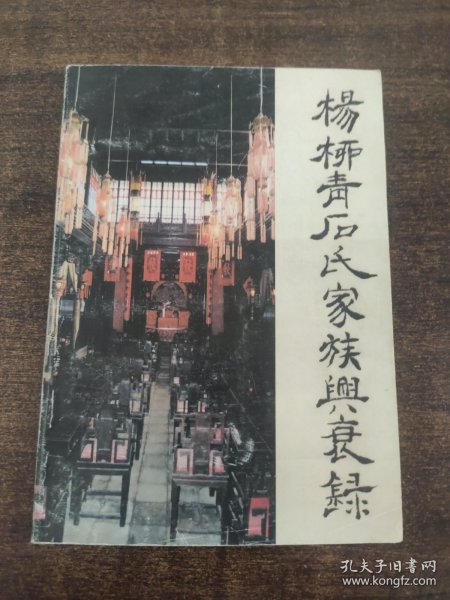 楊柳青石氏家族興衰録
孔夫子旧书网
www.kongfz.com